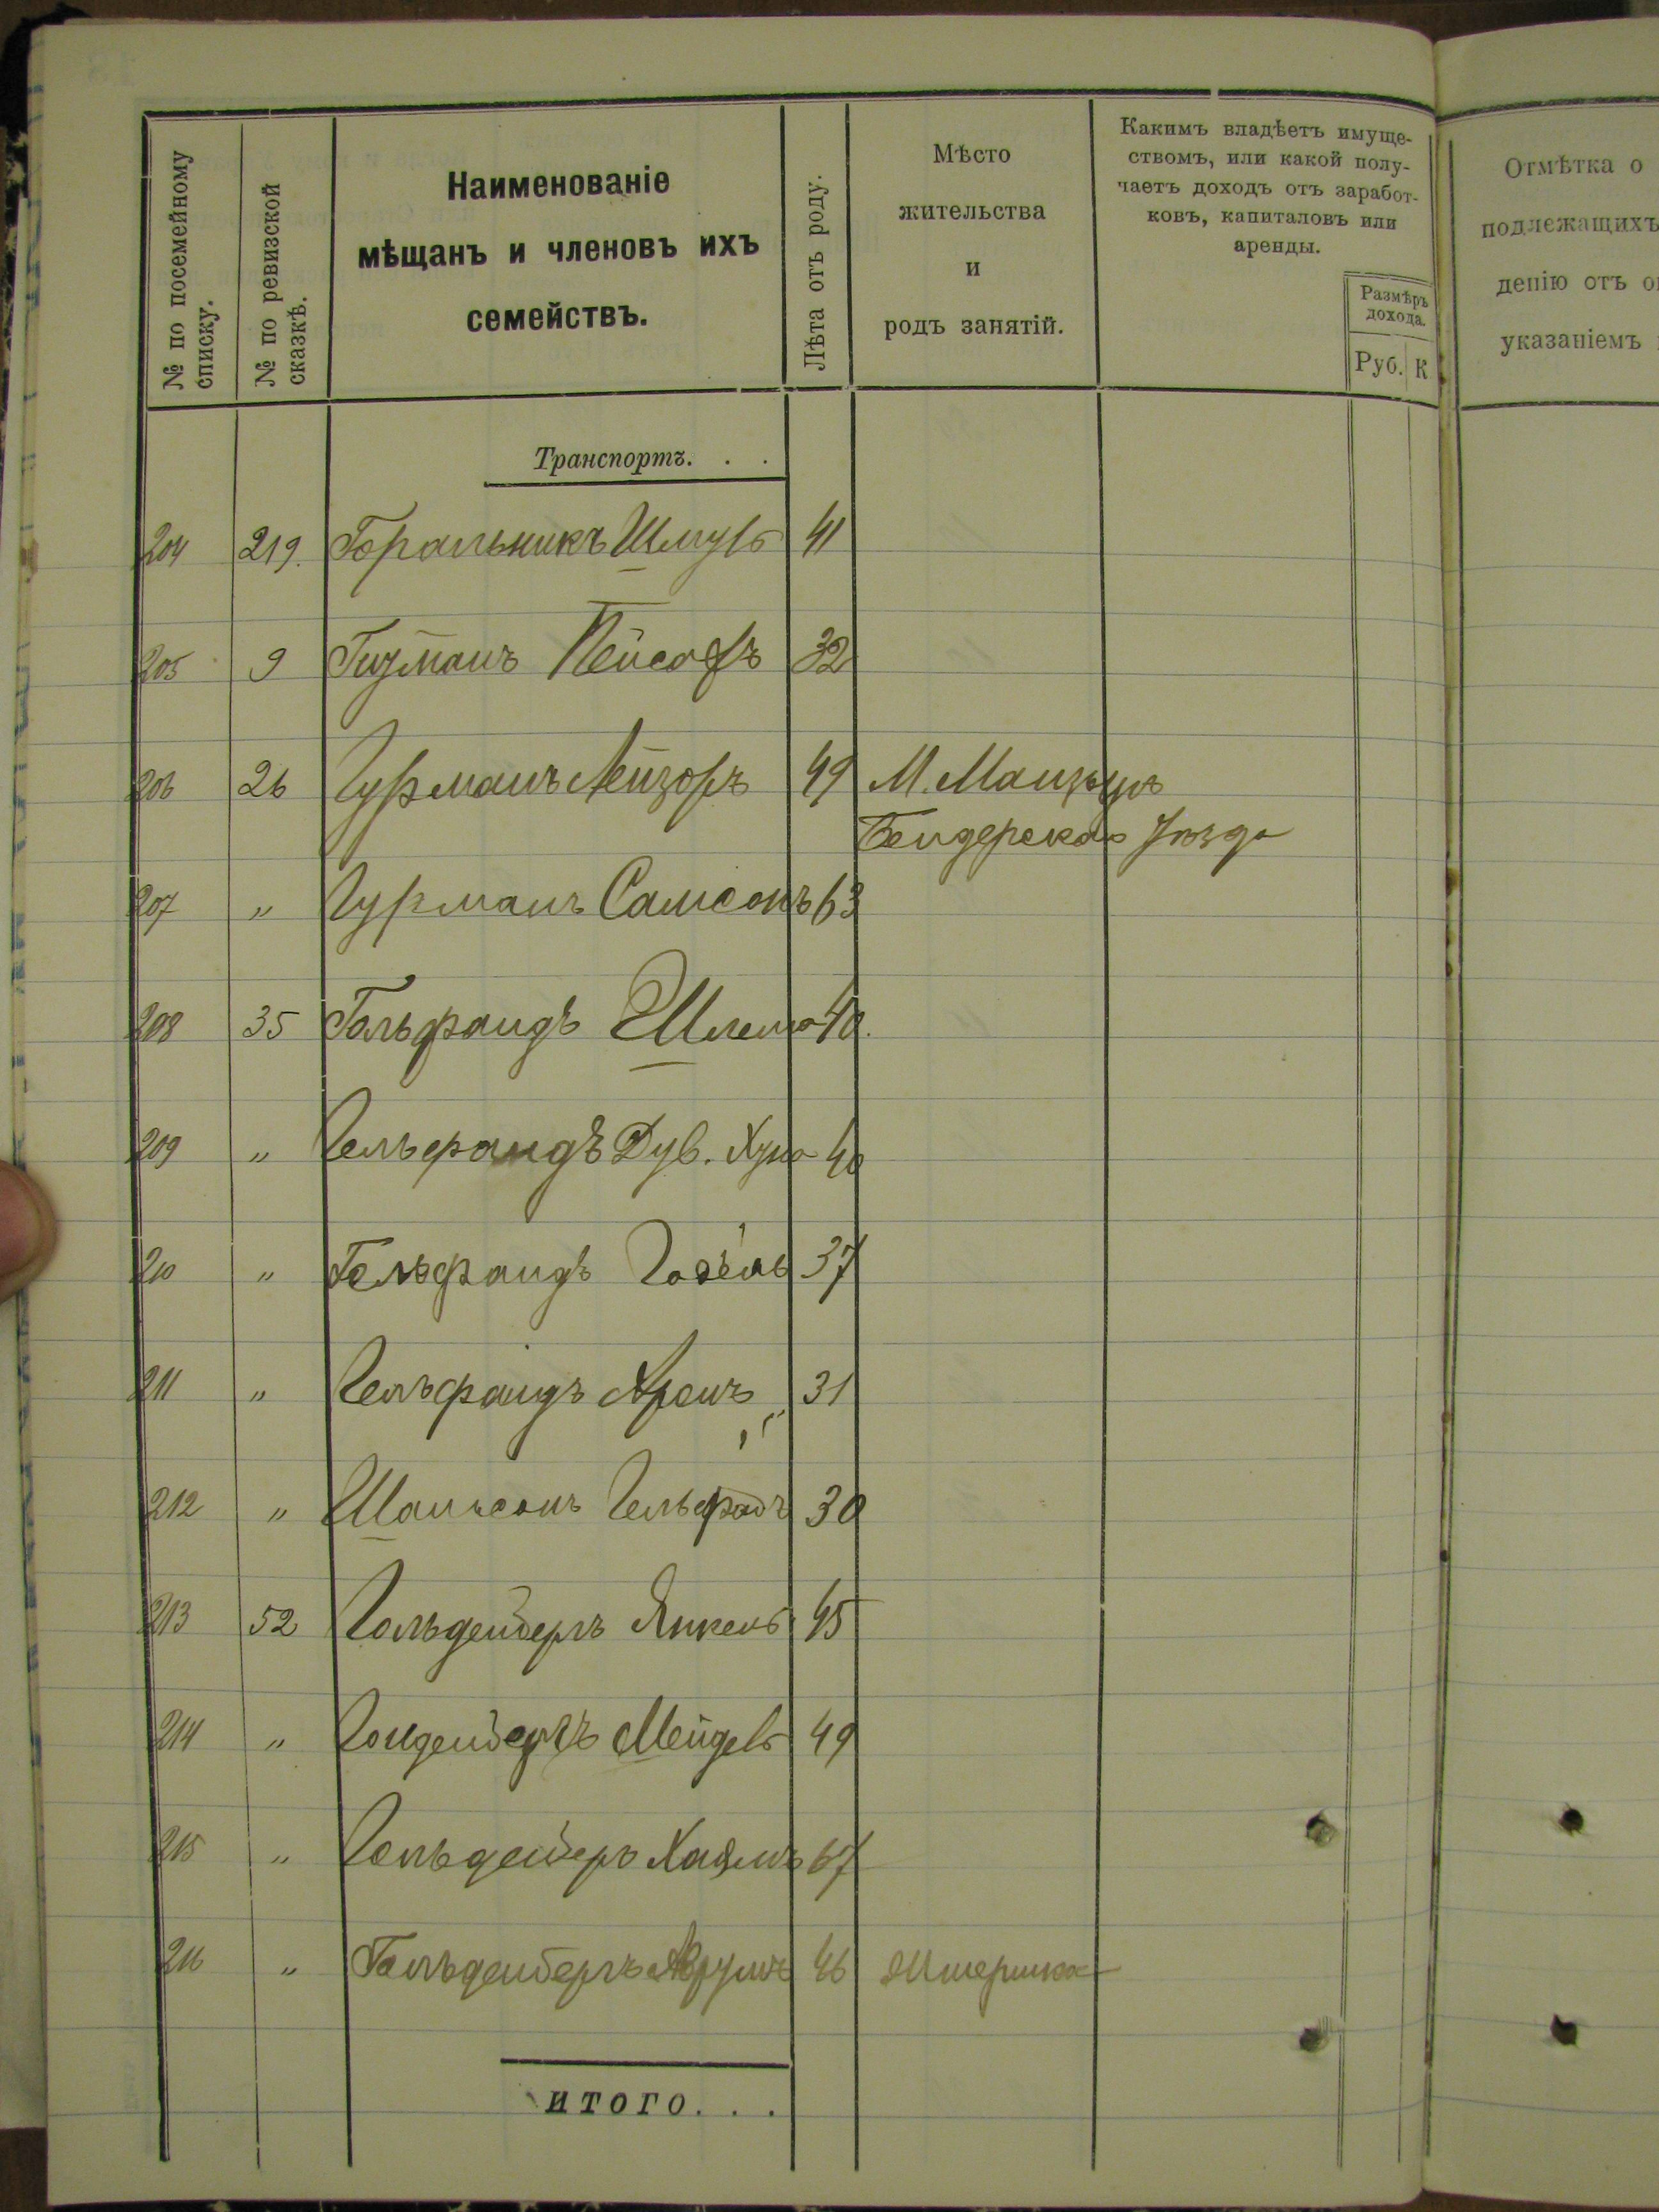 № по посемейному списку.
№ по ревизской сказкѣ.
Наименованіе
мѣщанъ и членовъ ихъ
семействъ.
Лѣта отъ роду.
Мѣсто
жительства
и
родъ занятій.
Какимъ владѣетъ имуще-
ствомъ, или какой полу-
чаетъ доходъ отъ заработ-
ковъ, капиталовъ или
аренды.
Размѣръ
дохода.
Руб. К
Отмѣтка о
подлежащихъ
денію отъ
указаніемъ
Транспортъ. . .
204 219. Горальникъ Шмуль 41
205 9 Гузманъ 32
206 26 Гурманъ Лейзоръ 49 М. Манзыръ
Бендерскаго Уѣзда
207 „ Гурманъ Самсонъ 63
208 35 Гельфандъ Шлема 40.
209 „ Гельфандъ Дув. Хуна 40
210 „ Гельфандъ 37
211 „ Гельфандъ Аронъ 31
212 „ Шамсонъ 30
213 52 Гольденберъ Янкель 45
214 „ Мендель 49
215 „ Гольденберъ Хаимъ 67
216 „ Гольденбергъ Аврумъ 46
ИТОГО. . .